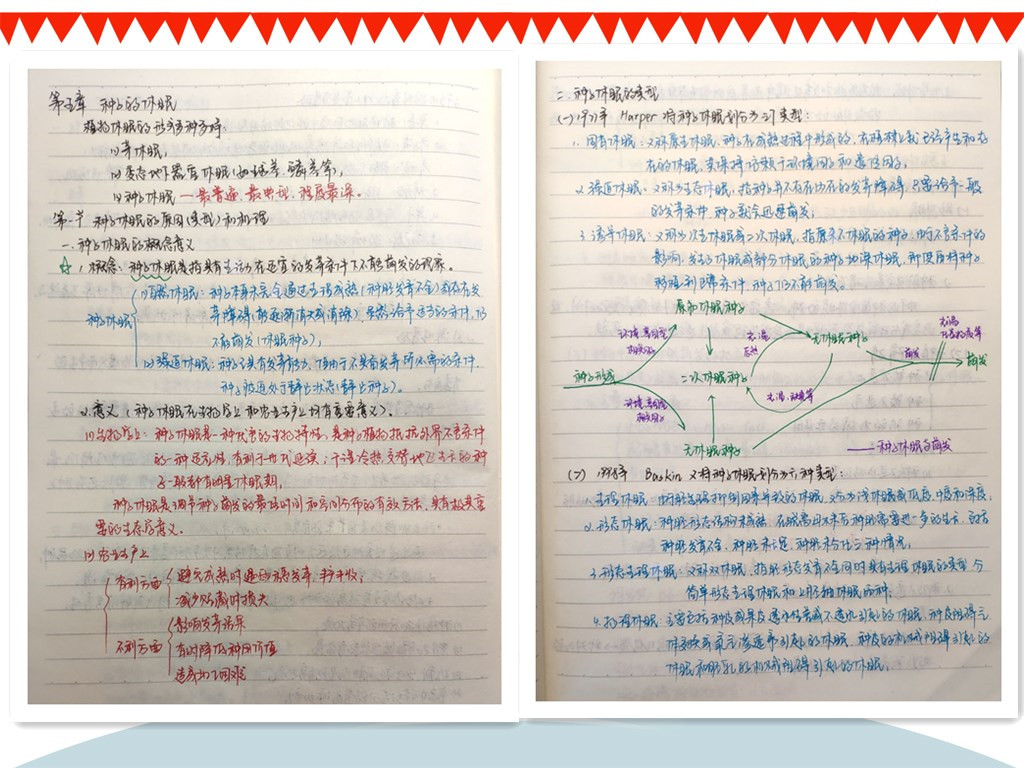 第五章 种子的休眠
植物休眠的形式多种多样:
(1)芽休眠,
(2)变态地下器官休眠(如块茎、鳞茎等),
(3)种子休眠 — 最普遍、最典型、程度最深。
第一节 种子休眠的原因(类型)和机理
一.种子休眠的概念意义
1.概念:种子休眠是指具有生活力在适宜的发芽条件下不能萌发的现象。
种子休眠
(1)自然休眠:种子本身未完全通过生理成熟(种胚发育不全)或存在发
芽障碍(能逐渐有效消除),虽然给予适当的条件,仍
不能萌发(休眠种子),
(2)强迫休眠:种子已具有发芽能力,但由于不具有发芽所必需的条件,
种子被迫处于静止状态(静止种子)。
2.意义(种子休眠在生物学上和农业生产上均有重要意义).
(1)生物学上:种子休眠是一种优良的生物特性,是种子植物抵抗外界不良条件
的一种适应性,有利于世代延续;干湿冷热交替地区生长的种
子一般都有明显休眠期,
种子休眠是调节种子萌发的最佳时间和空间分布的有效方法,具有极其重
要的生态学意义。
(2)农业生产上
有利方面
避免成熟时遇阴雨穗发芽,利于收,
减少贮藏时损失
不利方面
影响发芽结果
有时降低种用价值
造成加工困难
二.种子休眠的类型
(一)1971年 Harper 将种子休眠划分为3门类型:
1.固有休眠:又称原生休眠,种子在成熟过程中形成的,在母株上就已经产生和存
在的休眠,其保持依赖于环境因子和遗传因子。
2.强迫休眠:又称为生态休眠,指种子并不存在内在的发芽障碍,只要给予一般
的发芽条件,种子就会迅速萌发;
3.诱导休眠:又称为次生休眠或二次休眠,指原来不休眠的种子,由于不良条件的
影响,发生了休眠或部分休眠的种子加深休眠,即使再将种子
移至到正常条件,种子仍不能萌发。
原初休眠种子
环境、基因型
相互作用
光、温
后熟
无休眠种子
光、温
种子形成
二次休眠种子
萌发
萌发
环境、基因型
相互作用
无休眠种子
—— 种子休眠的萌发
(二) 1998年 Baskin 又将种子休眠划分为六种类型:
1.生理休眠:由胚生理抑制因素导致的休眠,又分为浅休眠或低度、中度和深度,
2.形态休眠:种胚形态结构未成熟,在脱离母本后种胚需要进一步的生长,包括
种胚发育不全,种胚未分化,种胚未分化三种情况,
3.形态生理休眠:又称双休眠,指胚形态发育不全同时具有生理休眠的类型,分
简单形态生理休眠和上胚轴休眠两种;
4.物理休眠:主要包括种皮或果皮透水性差或不透水引起的休眠,种皮阻碍气
体交换或氧气渗透率引起的休眠,种皮的机械阻碍引起的
休眠和胚乳的机械阻碍引起的休眠,